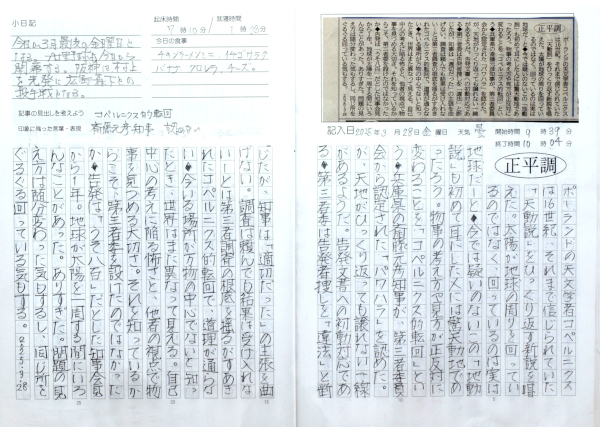 正平調
記入日2025年3月28日金曜日 天気 曇
開始時間 9時39分
終了時間 10時04分
正平調
ポーランドの天文学者コペルニクス
は16世紀、それまで信じられていた
「天動説」をひっくり返す新説を唱
えた。太陽が地球の周りを回ってい
るのではなく、回っているのは実は
地球だーと◆今では疑いのない「地動
説」も初めて耳にした人には驚天動地であ
ったろう。物事の考え方や見方が正反対に
変わることを「コペルニクス的転回」とい
う◆兵庫県の斎藤元彦知事が、第三者委員
会から認定された「パワハラ」を認めた。
が、天地がひっくり返っても譲れない一線
があるようだ。告発文書への初動対応であ
る◆第三者委は告発者捜しを「違法」と断
じたが、知事は「適切だった」の主張を曲
げない。調査は頼んでも結果は受け入れな
いーとは第三者調査の根底を揺るがすあき
れたコペルニクス的転回で、道理が通らな
い◆今いる場所が万物の中心でないと知っ
たとき、世界はまた異なって見える。自己
中心の考えに陥る怖さと、他者の視点で物
事を見つめる大切さ。それを知っているか
らこそ、第三者委を設けたのではなかった
か◆告発は「うそ八百」だとした知事会見
から1年。地球が太陽を一周する間にいろ
んなことがあった。ありすぎた。問題の見
え方は随分変わった気もするし、同じ所を
ぐるぐる回っている気もする。2025・3・28
小日記
起床時間 7時10分
就寝時間
今日の食事
今日は3月最後の金曜日と
なる。プロ野球も今日から
開幕する。阪神は村上
を先発に広島森下との
投手戦となる。
バナナ クロレラ、チーズ。
記事の見出しを考えよう コペルニクス的転回
印象に残った言葉・表現 斎藤元彦知事